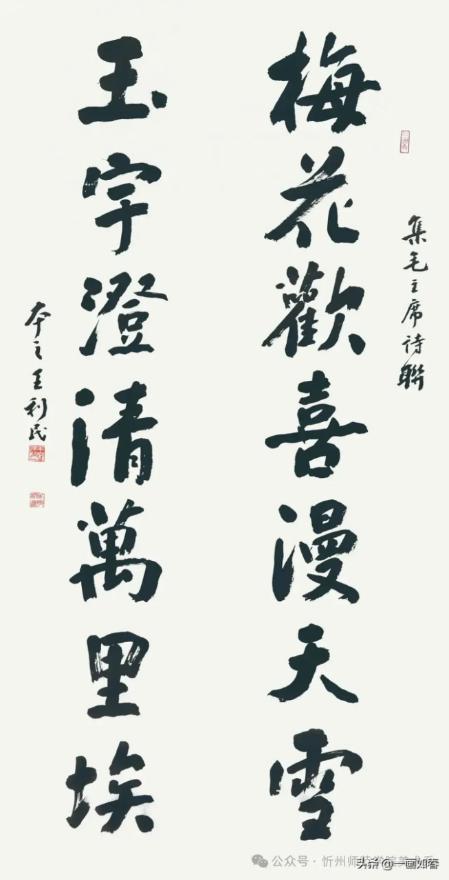 集毛主席诗聯
梅花歡喜漫天雪
玉宇澄清萬里埃
本之王利民
公众号 · 忻州师范学院美术系
头条 @一画如